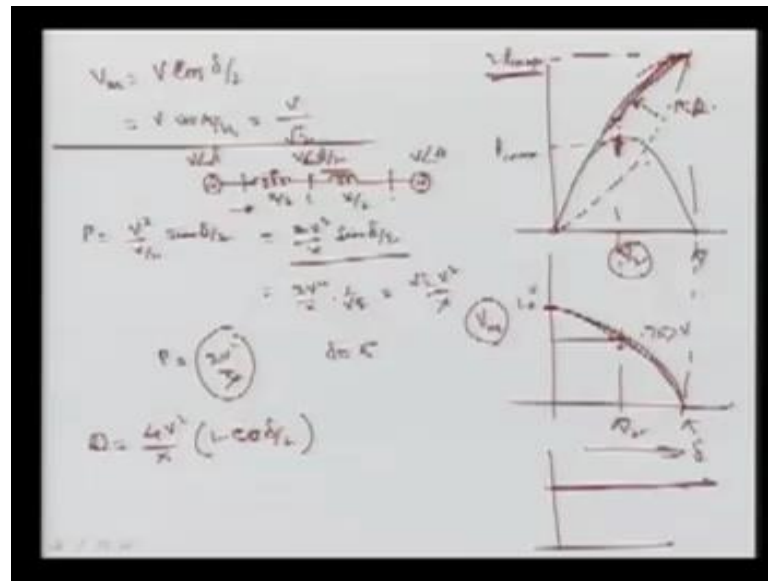 Vm = V Cos δ/2
= V cos π/4 = V/√2
V∠δ V∠δ/2 V∠0
x/2 x/2
P = V²/x/2 sin δ/2 = 2V²/x sin δ/2
= 2V²/x · 1/√2 = √2 V²/x
P = 2V²/x δ = π
Q = 4V²/x (1-cos δ/2)
π/2 π
Vm 1.0 .707 V
π/2 π
δ